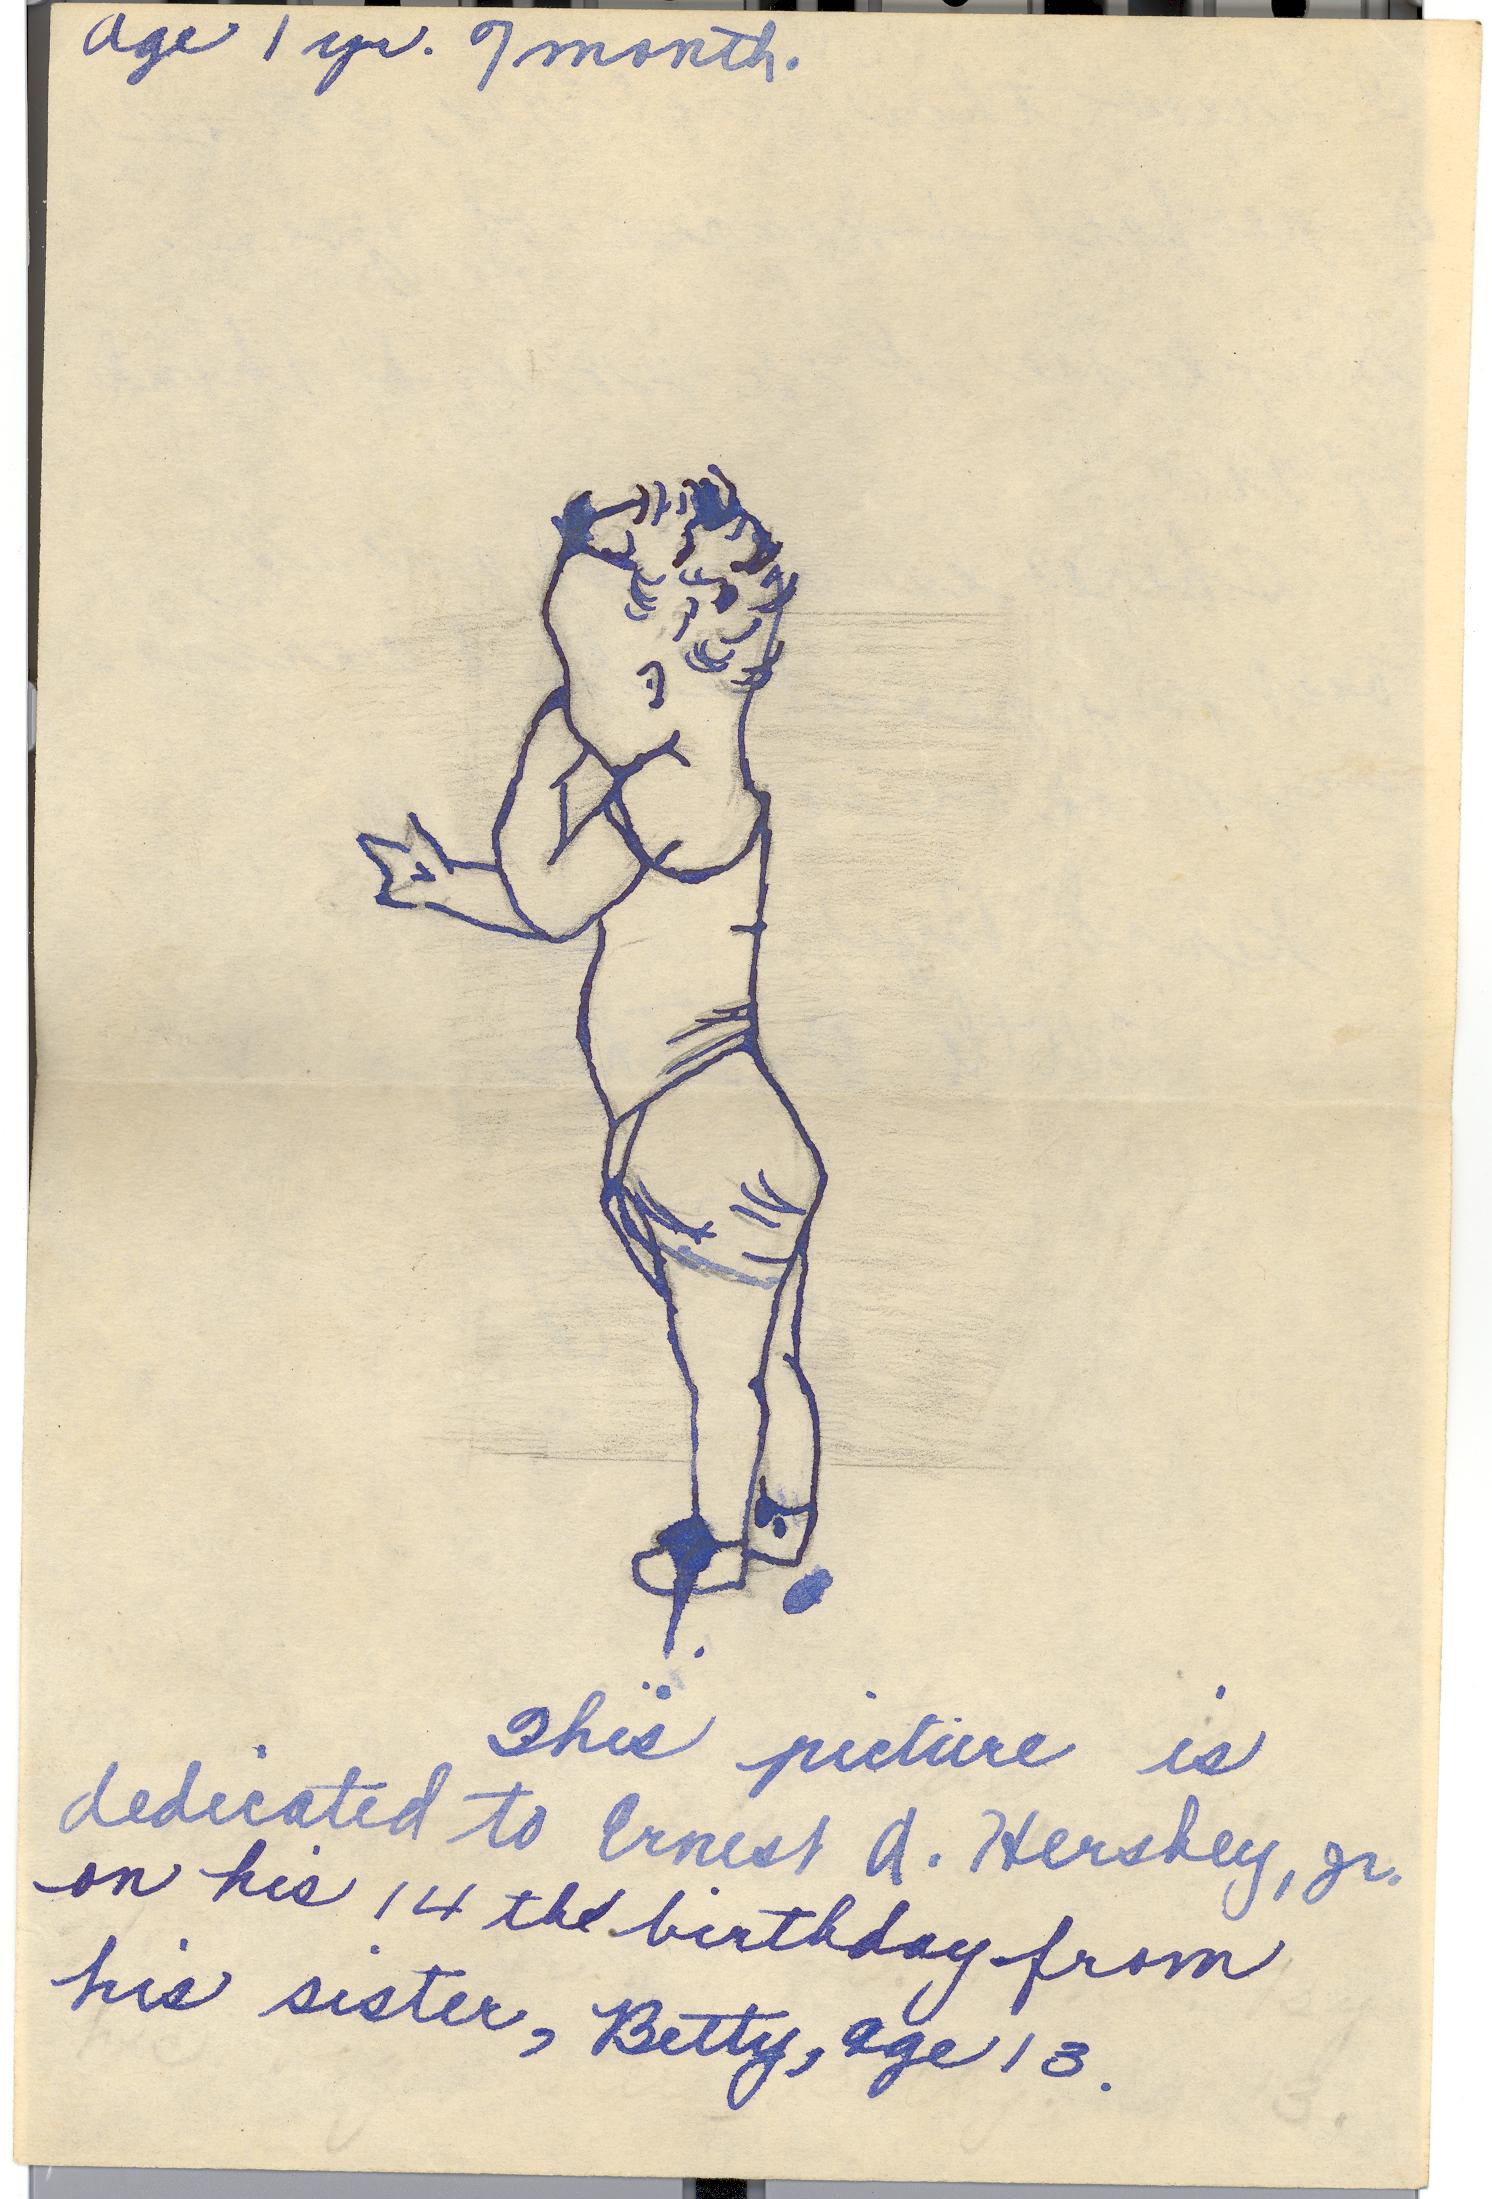 age 1 yr. 9 month.
This picture is
dedicated to Ernest A. Hershey, jr.
on his 14 the birthday from
his sister, Betty, age 13.